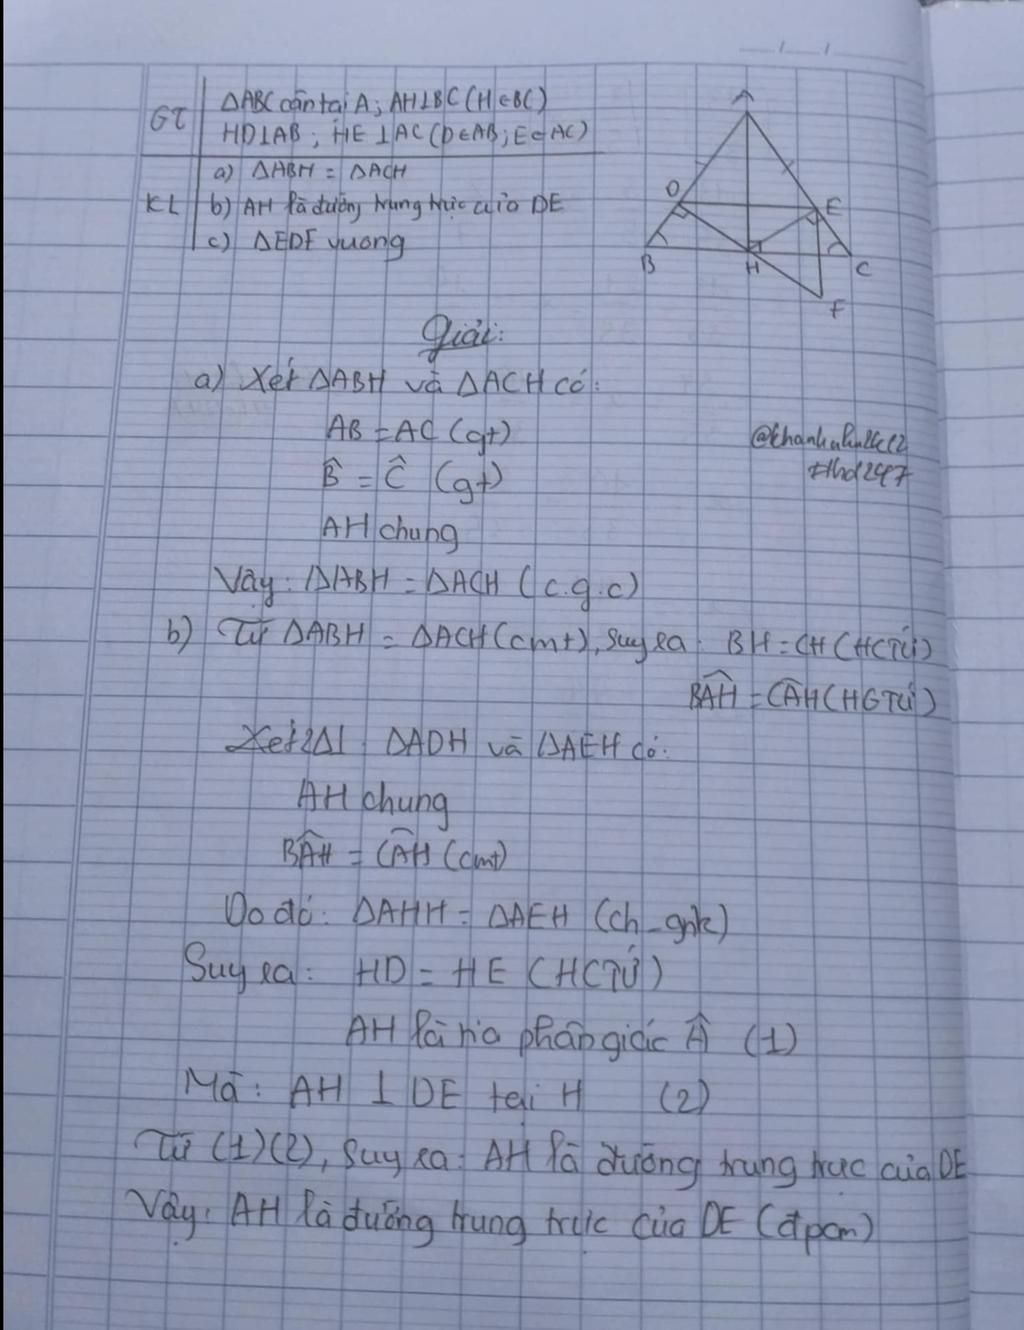 GT
ΔABC cân tại A; AH⊥BC (H∈BC)
HD⊥AB; HE⊥AC (D∈AB; E∈AC)
KL
a) ΔABH = ΔACH
b) AH là đường trung trực của DE
c) ΔEDF vuông
A
D
E
B
H
C
F
Giải:
a) Xét ΔABH và ΔACH có:
AB = AC (gt)
B̂ = Ĉ (gt)
AH chung
Vậy: ΔABH = ΔACH (c.g.c)
#thd247
b) Từ ΔABH = ΔACH (cmt), suy ra: BH = CH (HCTỨ)
BÂH = CÂH (HGTỨ)
Xét 2Δ⊥: ΔADH và ΔAEH có:
AH chung
BÂH = CÂH (cmt)
Do đó: ΔAHH = ΔAEH (ch_gnk)
Suy ra: HD = HE (HCTỨ)
AH là tia phân giác Â (1)
Mà: AH ⊥ DE tại H (2)
Từ (1)(2), suy ra: AH là đường trung trực của DE
Vậy: AH là đường trung trực của DE (đpcm)